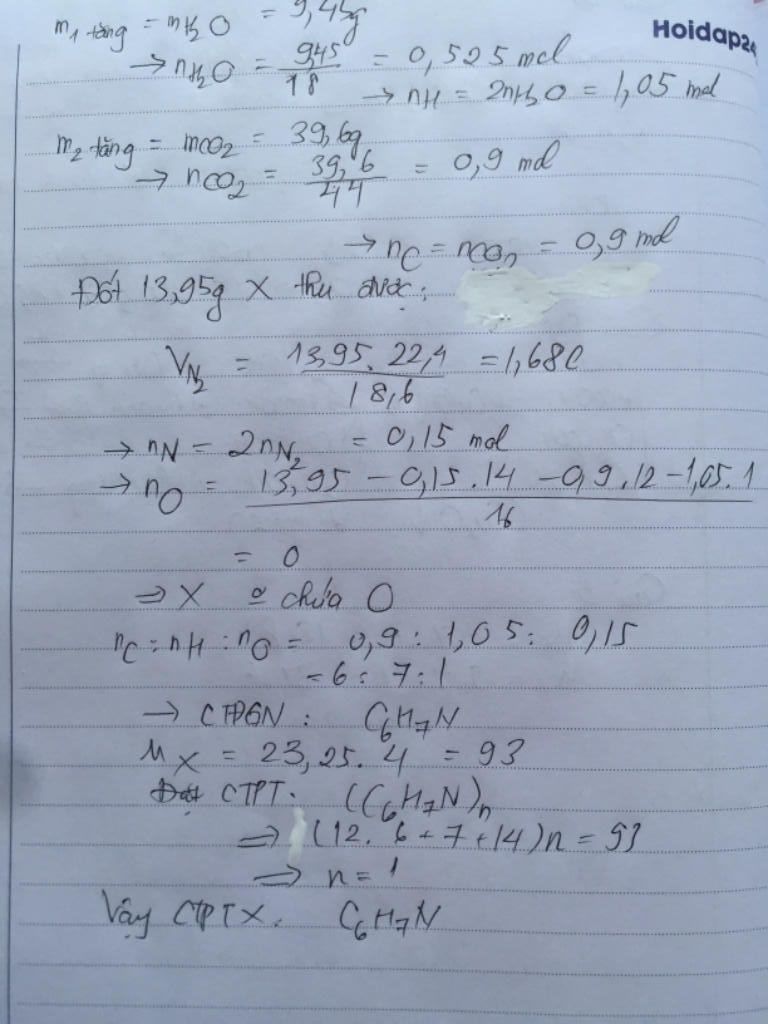 Hoidap24
m₁ tăng = mH₂O = 9,45g
→ nH₂O = 9,45/18 = 0,525 mol
→ nH = 2nH₂O = 1,05 mol
m₂ tăng = mCO₂ = 39,6g
→ nCO₂ = 39,6/44 = 0,9 mol
→ nC = nCO₂ = 0,9 mol
Đốt 13,95g X thu được:
VN₂ = 13,95.22,4/18,6 = 1,68l
→ nN = 2nN₂ = 0,15 mol
→ nO = 13,95 - 0,15.14 - 0,9.12 - 1,05.1/16
= 0
⇒ X chứa O
nC : nH : nO = 0,9 : 1,05 : 0,15
= 6 : 7 : 1
→ CTĐGN : C₆H₇N
MX = 23,25.4 = 93
Đặt CTPT: (C₆H₇N)n
⇒ (12.6+7+14)n = 93
⇒ n = 1
Vậy CTPT X: C₆H₇N